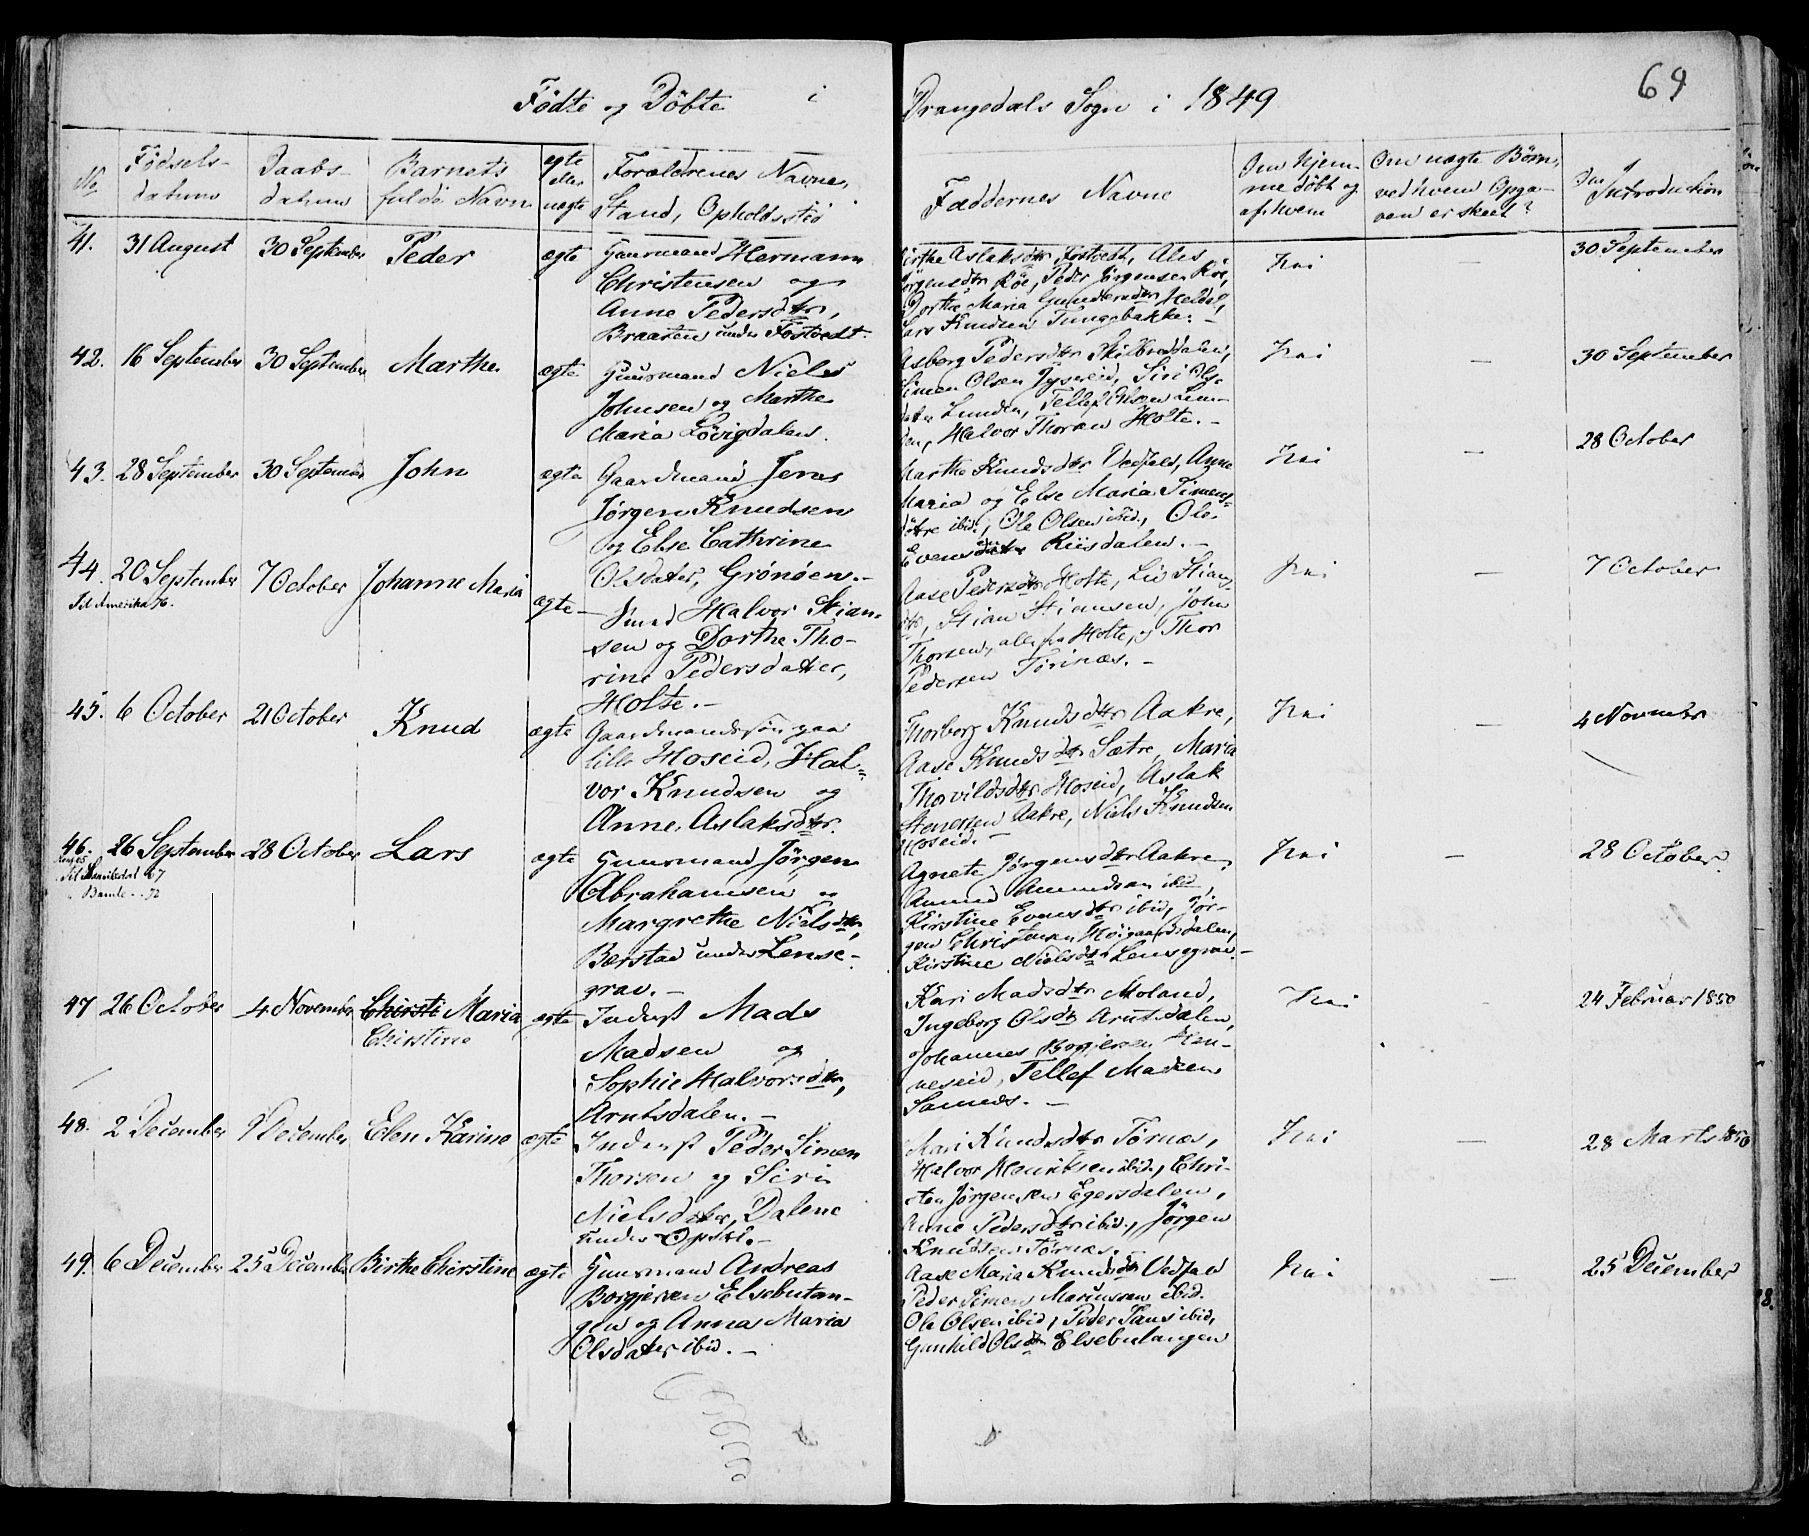 Födte og Döbte i Drangedals Sogn i 1849
69
No
Fødsels-
datum
Daabs-
datum
Barnets
fulde Navn
ægte
eller
uægte
Forældrenes Navne,
Stand, Opholdssted
Faddernes Navne
Om hjem-
medöbt og
af hvem
Om uægte Børn,
ved hvem Opga-
ven er skeet?
Introduction
41. 31 August 30 September Peder ægte Huusmand Hermann
Christensen og
Anne Pedersdtr,
Braaten under Fostvedt.
Birthe Aslaksdtr Fostvedt, Ales
Jörgensdtr Röe, Peder Jörgensen Röe,
Dorthe Maria Gundersdtr Heldal,
Lars Knudsen Tungebakke. -
Nei - 30 September
42. 16 September 30 September Marthe ægte Huusmand Niels
Johnsen og Marthe
Maria Lövigdalen.
Asborg Pedersdtr Skilbreddalen,
Simen Olsen Jysereid, Siri Ols-
datter Lunden, Tellef Olsen Lun-
den, Halvor Thoran Holte. -
Nei - 30 September
43. 28 September 30 September John ægte Gaardmand Jens
Jörgen Knudsen
og Else Cathrine
Olsdatter, Grönöen. -
Marthe Knudsdtr Vedfald, Anne
Maria og Else Maria Simens-
döttre ibid., Ole Olsen ibid., Ole
Evensen Riisdalen. -
Nei - 28 October
44. 20 September 7 October Johanne Maria ægte
Til Amerika 76.
Smed Halvor Stian-
sen og Dorthe Tho-
rine Pedersdatter,
Holte. -
Aase Pedersdtr Holte, Liv Stians-
dtr, Stian Stiansen, John
Thorsen, alle fra Holte, og Thor
Pedersen Törinæs. -
Nei - 7 October
45. 6 October 21 October Knud ægte Gaardmandssøn paa
lille Hoseid, Hal-
vor Knudsen og
Anne Aslaksdtr.
Thorborg Knudsdtr Aakre,
Aase Knudsdtr Sætre, Maria
Thorvildsdtr Hoseid, Aslak
Stenersen Aakre, Niels Knudsen
Hoseid. -
Nei - 4 November
46. 26 September 28 October Lars ægte Huusmand Jörgen
Abrahamsen og
Margrethe Nielsdtr,
Bærstad under Lense-
grav. -
Bamle - 72
Agnete Jörgensdtr Aakre,
Amund Amundsen ibid,
Kirstine Evensdtr ibid, Jör-
gen Christensen Höigaardsdalen,
Kirstine Nielsdtr Lensegrav. -
Nei - 28 October
47 26 October 4 November Chirsti Maria ægte
Chirstine
Inderst Mads
Madsen og
Sophie Halvorsdtr,
Arntsdalen. -
Kari Madsdtr Moland,
Ingeborg Olsdtr Arntsdalen,
Johannes Borgjersen Hen-
neseid, Tellef Madsen
Sannæs. -
Nei - 24 Februar 1850
48. 2 December 9 December Elen Karine ægte Inderst Peder Simen
Thorsen og Siri
Nielsdatter, Dalene
under Opstul. -
Mari Knudsdtr Törnæs,
Halvor Henriksen ibid, Chri-
sten Jörgensen Egersdalen,
Anne Pedersdtr ibid., Jörgen
Knudsen Törnæs.
Nei - 28 Marts 1850
49. 6 December 25 December Birthe Chirstine ægte Huusmand Andreas
Borgjersen Elsebutan-
gen og Anna Maria
Olsdatter ibid. -
Aase Maria Knudsdtr Vedfald
Peder Simen Mariussen ibid.
Ole Olsen ibid, Peder Hans ibid,
Gunhild Olsdtr Elsebutangen
Nei - 25 December